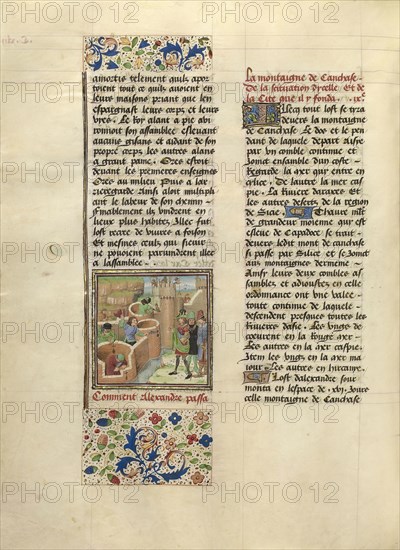 amortis telement quilz apor
toient tout ce quilz auoient en
leurs maisons priant que len
espargnast leurs corps et leurs
vies. Le Roy alant a pie abi
ronnoit son assamblee esleuant
aucuns gisans et aidant de son
propre corps les autres alans
a grant paine. Ores estoit
deuant les premieres enseignes
Ores au milieu Puis a lar
rieregarde Ainsi aloit multipli
ant le labeur de son chemin
finablement ilz vindrent en
lieux plus habitez Illec fut
lost recree de viures a foison
Et mesmes ceulx qui sieuir
ne pouoient paruindrent illec
a lassamblee.
Comment Alexandre passa
la montaigne de Cauchase.
De la scituation dycelle Et de
la Cite que il y fonda. ixe.
Illecq tout lost se tira
deuers la montaigne
de Cauchase Le dos et le pen
dant de laquelle depart Aise
par vng comble continue et
Joinct ensamble dun coste
Regarde la mer qui entre en
celice. De lautre la mer cas
pie. La riuiere daraxes et
les autres desers de la region
de Sciae. Thaure mist
de grandeur moienne qui est
esleue de Capadoce se trait
deuers ledit mont de cauchase
si passe par Silice et se Joint
aux montaignes dermenie
Ainsi leurs deux combles as
samblez et adioustez en celle
ordonnance ont vne valee
toute continue de laquelle
descendent presques toutes les
Riuieres dasie. Les vngs de
coeurent en la rouge mer.
Les autres en la mer caspie.
Item les vngz en la mer ma
iour. Les autres en hircanye.
Lost dalexandre sour
monta en lespace de .xvj. Jours
celle montaigne de Cauchase
PHOTO 12